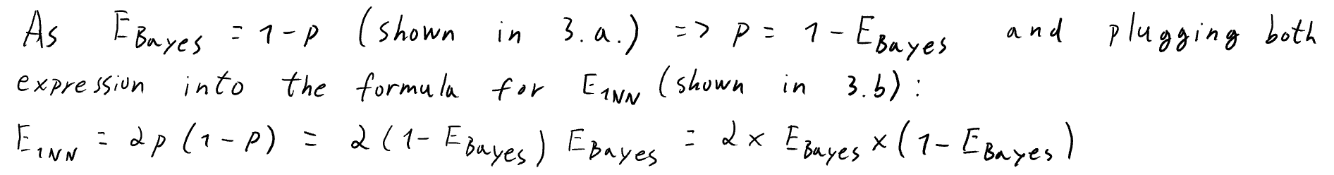 As E_Bayes = 1-p (shown in 3.a.) => p = 1 - E_Bayes and plugging both
expression into the formula for E_1NN (shown in 3.b) :
E_1NN = 2p (1-p) = 2 (1- E_Bayes) E_Bayes = 2 × E_Bayes × (1- E_Bayes)